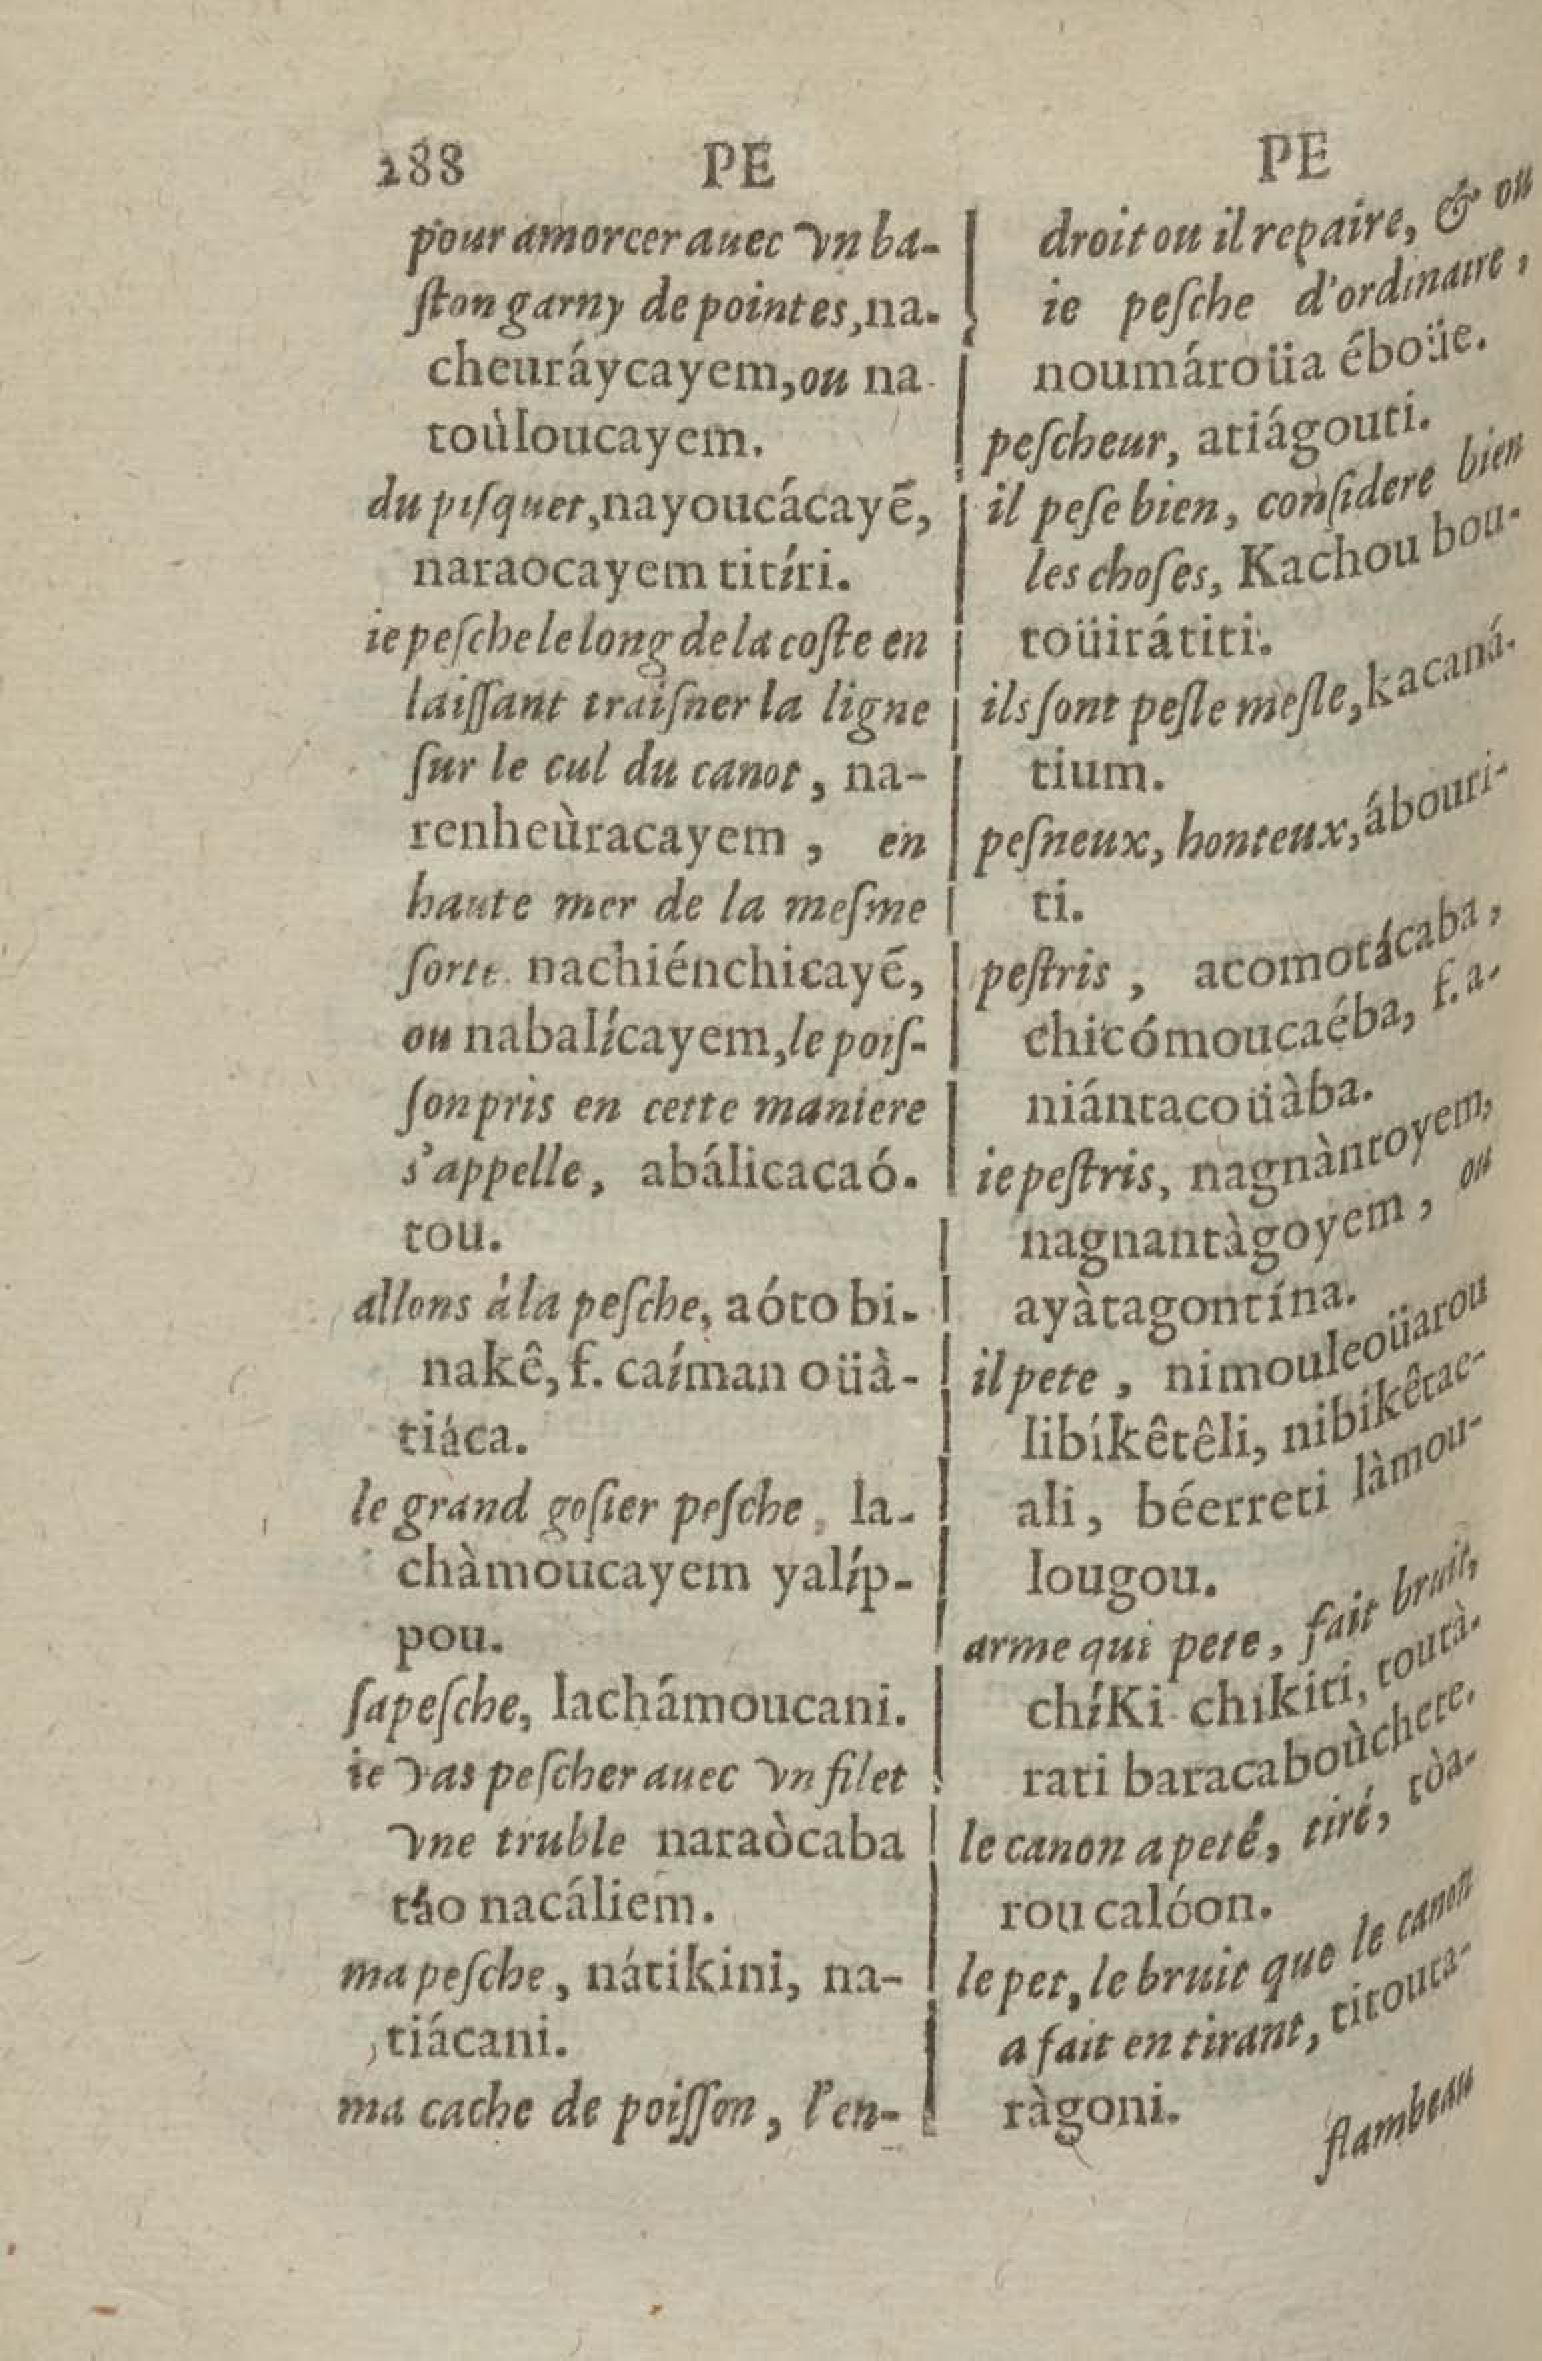 288 PE PE
pour amorcer auec vn ba-
ſton garny de pointes, na-
cheuráycayem, ou na
toùloucayem.
du piſquet, nayoucácayẽ,
naraocayem titíri.
ie peſche le long de la coſte en
laiſſant traiſner la ligne
ſur le cul du canot, na-
renheùracayem, en
haute mer de la meſme
ſorte nachiénchicayẽ,
ou nabalícayem, le poiſ-
ſon pris en cette maniere
s'appelle, abálicacaó.
tou.
allons à la peſche, aóto bi-
nakê, f. caíman oüà-
tiáca.
le grand goſier peſche, la-
chàmoucayem yalíp-
pou.
ſa peſche, lachámoucani.
ie vas peſcher auec vn filet
vne truble naraòcaba
táo nacáliem.
ma peſche, nátikini, na-
tiácani.
ma cache de poiſſon, l'en-
droit ou il repaire, & ou
ie peſche d'ordinaire,
noumároüa éboüe.
peſcheur, atiágouti.
il peſe bien, conſidere bien
les choſes, Kachou bou-
toüirátiti.
ils ſont peſle meſle, kacaná-
tium.
peſneux, honteux, ábouri-
ti.
peſtris, acomotácaba,
chicómoucaéba, f. a-
niántacoüàba.
ie peſtris, nagnàntoyem,
nagnantàgoyem, ou
ayàtagontína.
il pete, nimouleoüarou
libíkêtêli, nibikêtac-
ali, béerreti làmou-
lougou.
arme qui pete, fait bruit,
chíKi chikiti, toutà-
rati baracaboùchete.
le canon a peté, tiré, tòa-
rou calóon.
le pet, le bruit que le canon
a fait en tirant, titouta-
ràgoni.
flambeau